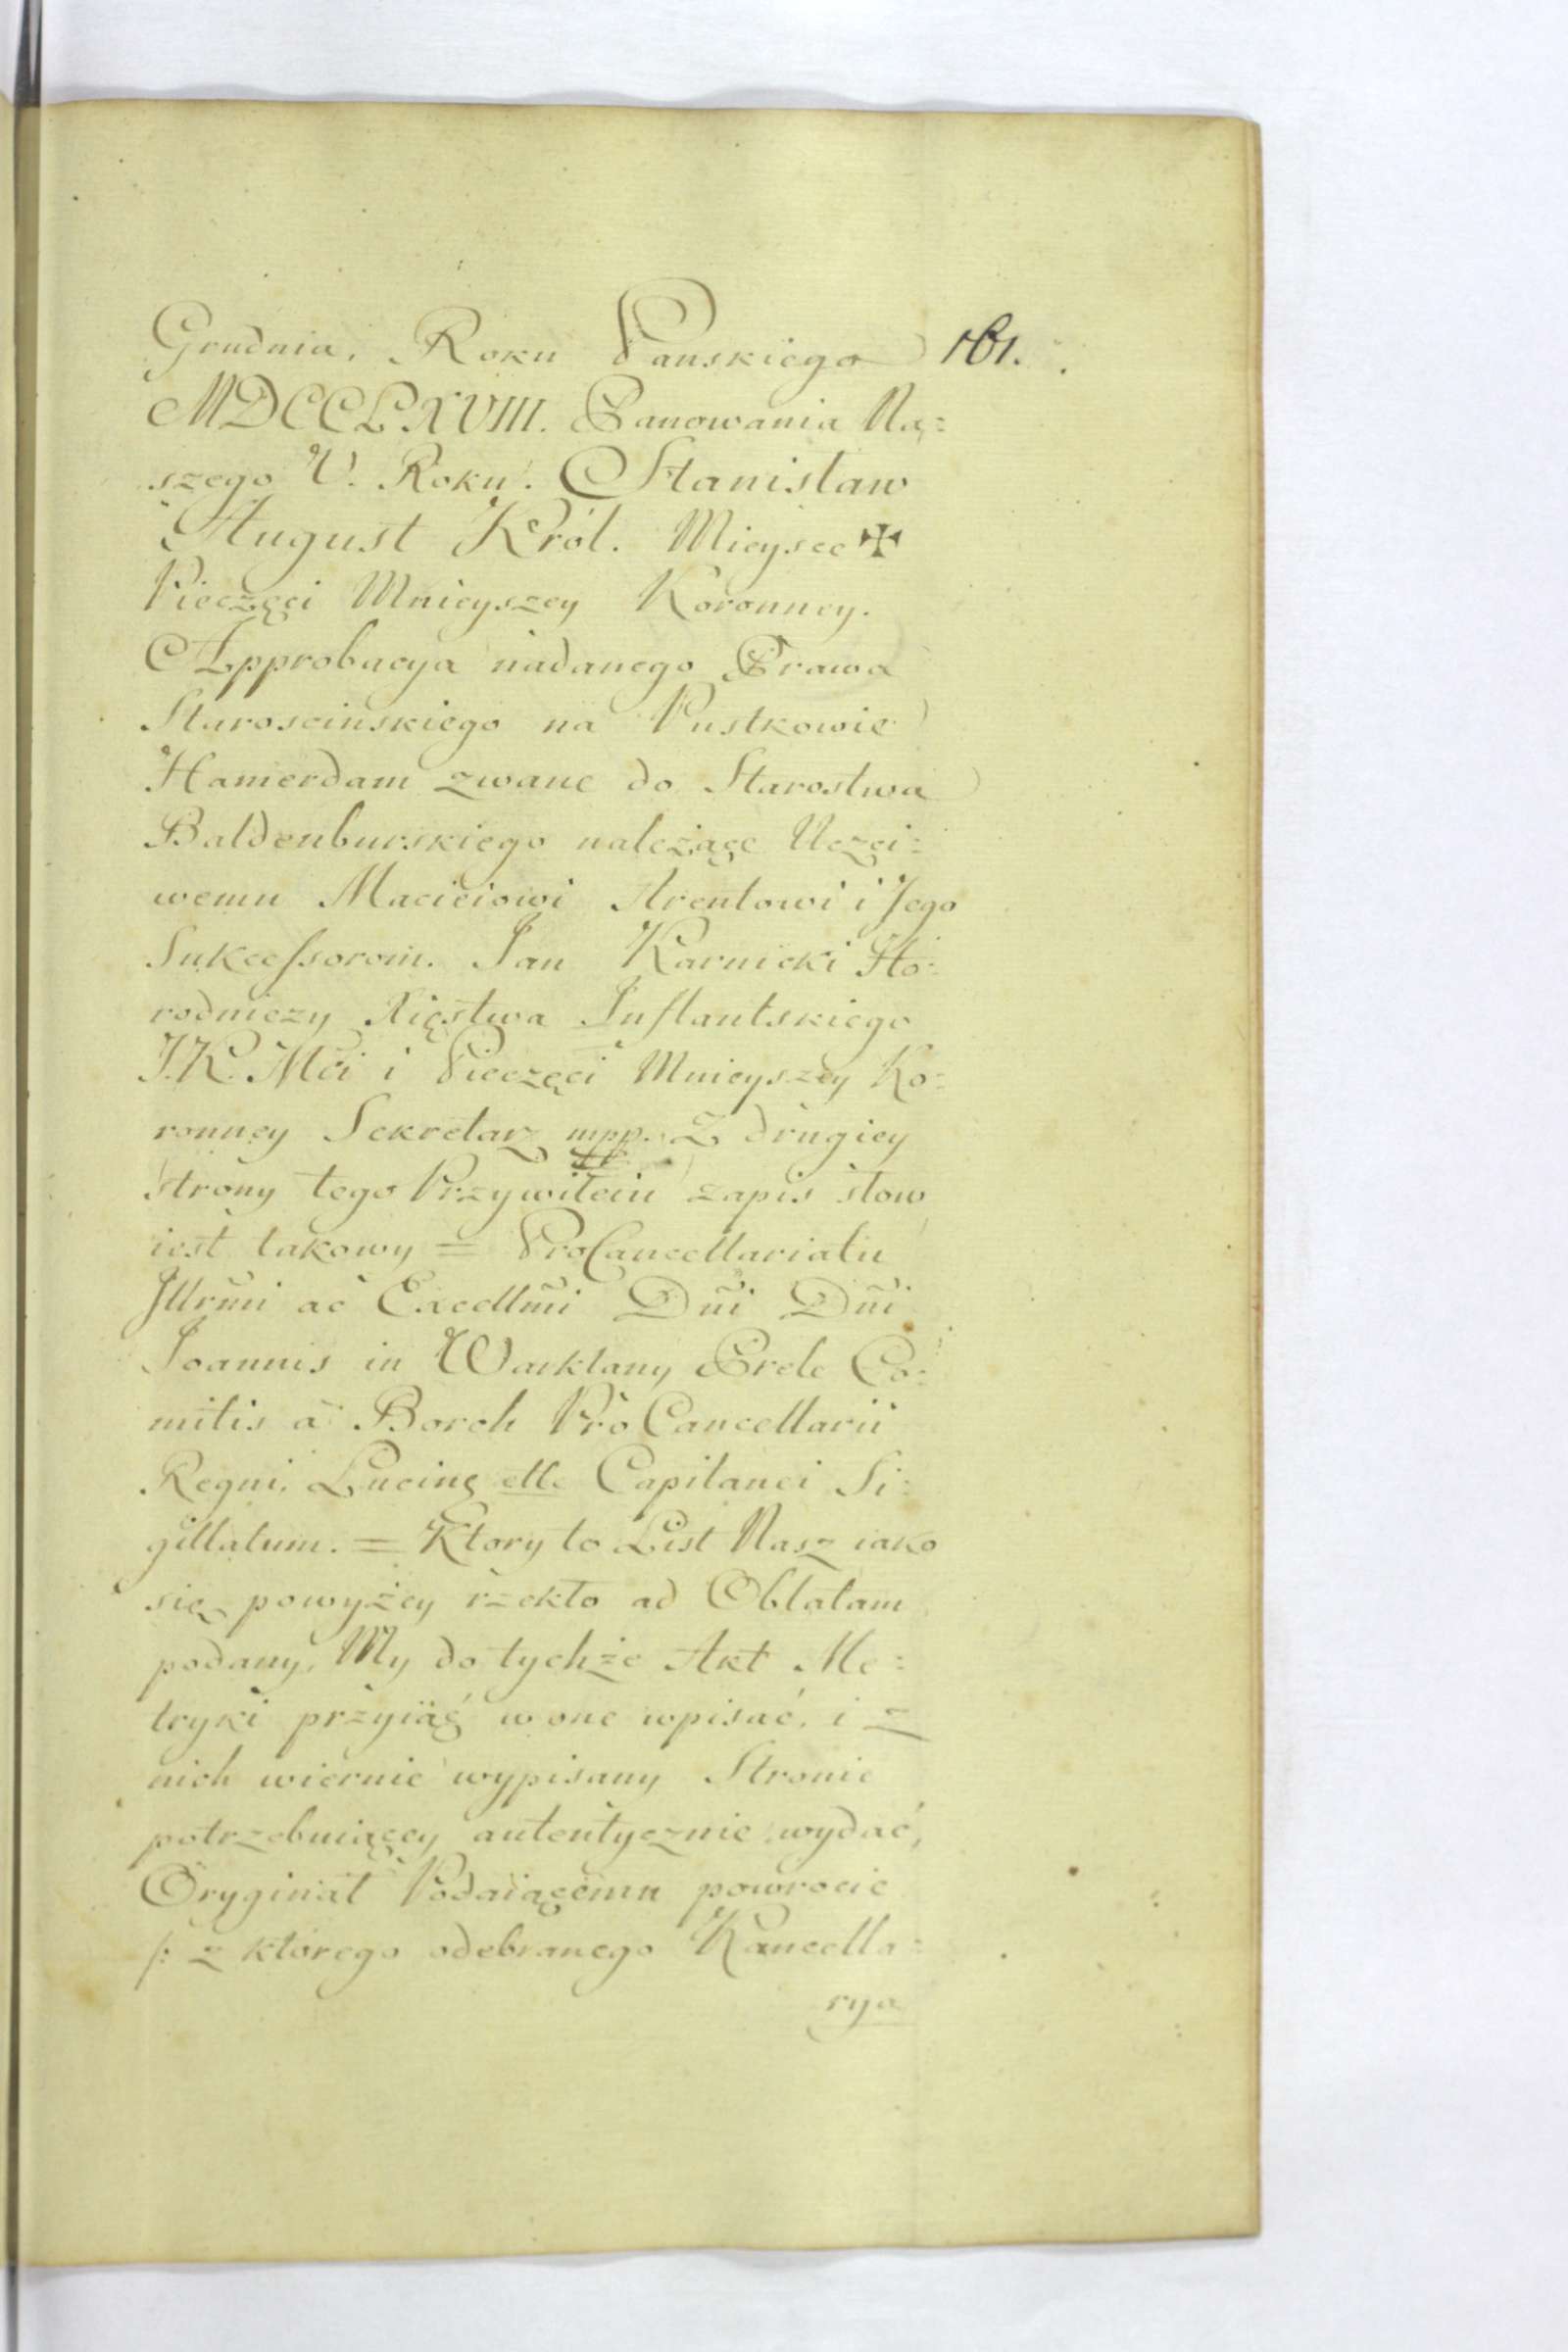 Grudnia, Roku Panskiego 161.
MDCCLXVIII. Panowania Na=
szego V. Roku. Stanisław
August Król. Mieysce ✠
Pieczęci Mnieyszey Koronney.
Approbacya nadanego Prawa
Staroscinskiego na Pustkowie
Hamerdam zwane do Starostwa
Baldenburskiego należące Uczci=
wemu Macieiowi Arentowi i Jego
Sukcessorom. Jan Karnicki Ho=
rodniczy Xięstwa Inflantskiego
J.K. Mci i Pieczęci Mnieyszey Ko=
ronney Sekretarz mpp. Z drugiey
strony tego Przywileiu zapis słow
iest takowy = ProCancellariatu
Jllrmi ac Excellmi Dni Dni
Joannis in Warklany Prele Co=
mitis a Borch ProCancellarii
Regni, Lucinę ettc Capitanei Si=
gillatum. = Ktory to List Nasz iako
się powyżey rzekło ad Oblatam
podany, My do tychże Akt Me=
tryki przyiąć w one wpisać, i z
nich wiernie wypisany Stronie
potrzebuiącey autentycznie wydać,
Oryginał Podaiącemu powrocic
/: z którego odebranego Kancella=
rya